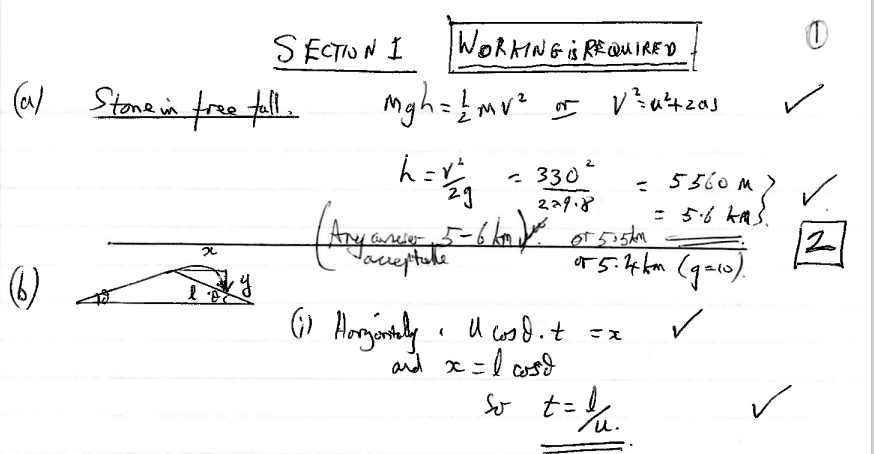 ①
SECTION I WORKING IS REQUIRED
(a) Stone in free fall. mgh = ½ mv² or v² = u² + 2as ✓
h = v²/2g = 330²/2×9.8 = 5560 m ✓
= 5.6 km
(Any answer 5-6 km acceptable) or 5.5 km 2
or 5.4 km (g=10).
(b) x l θ y θ
(i) Horizontally, u cosθ.t = x ✓
and x = l cosθ
So t = l/u. ✓